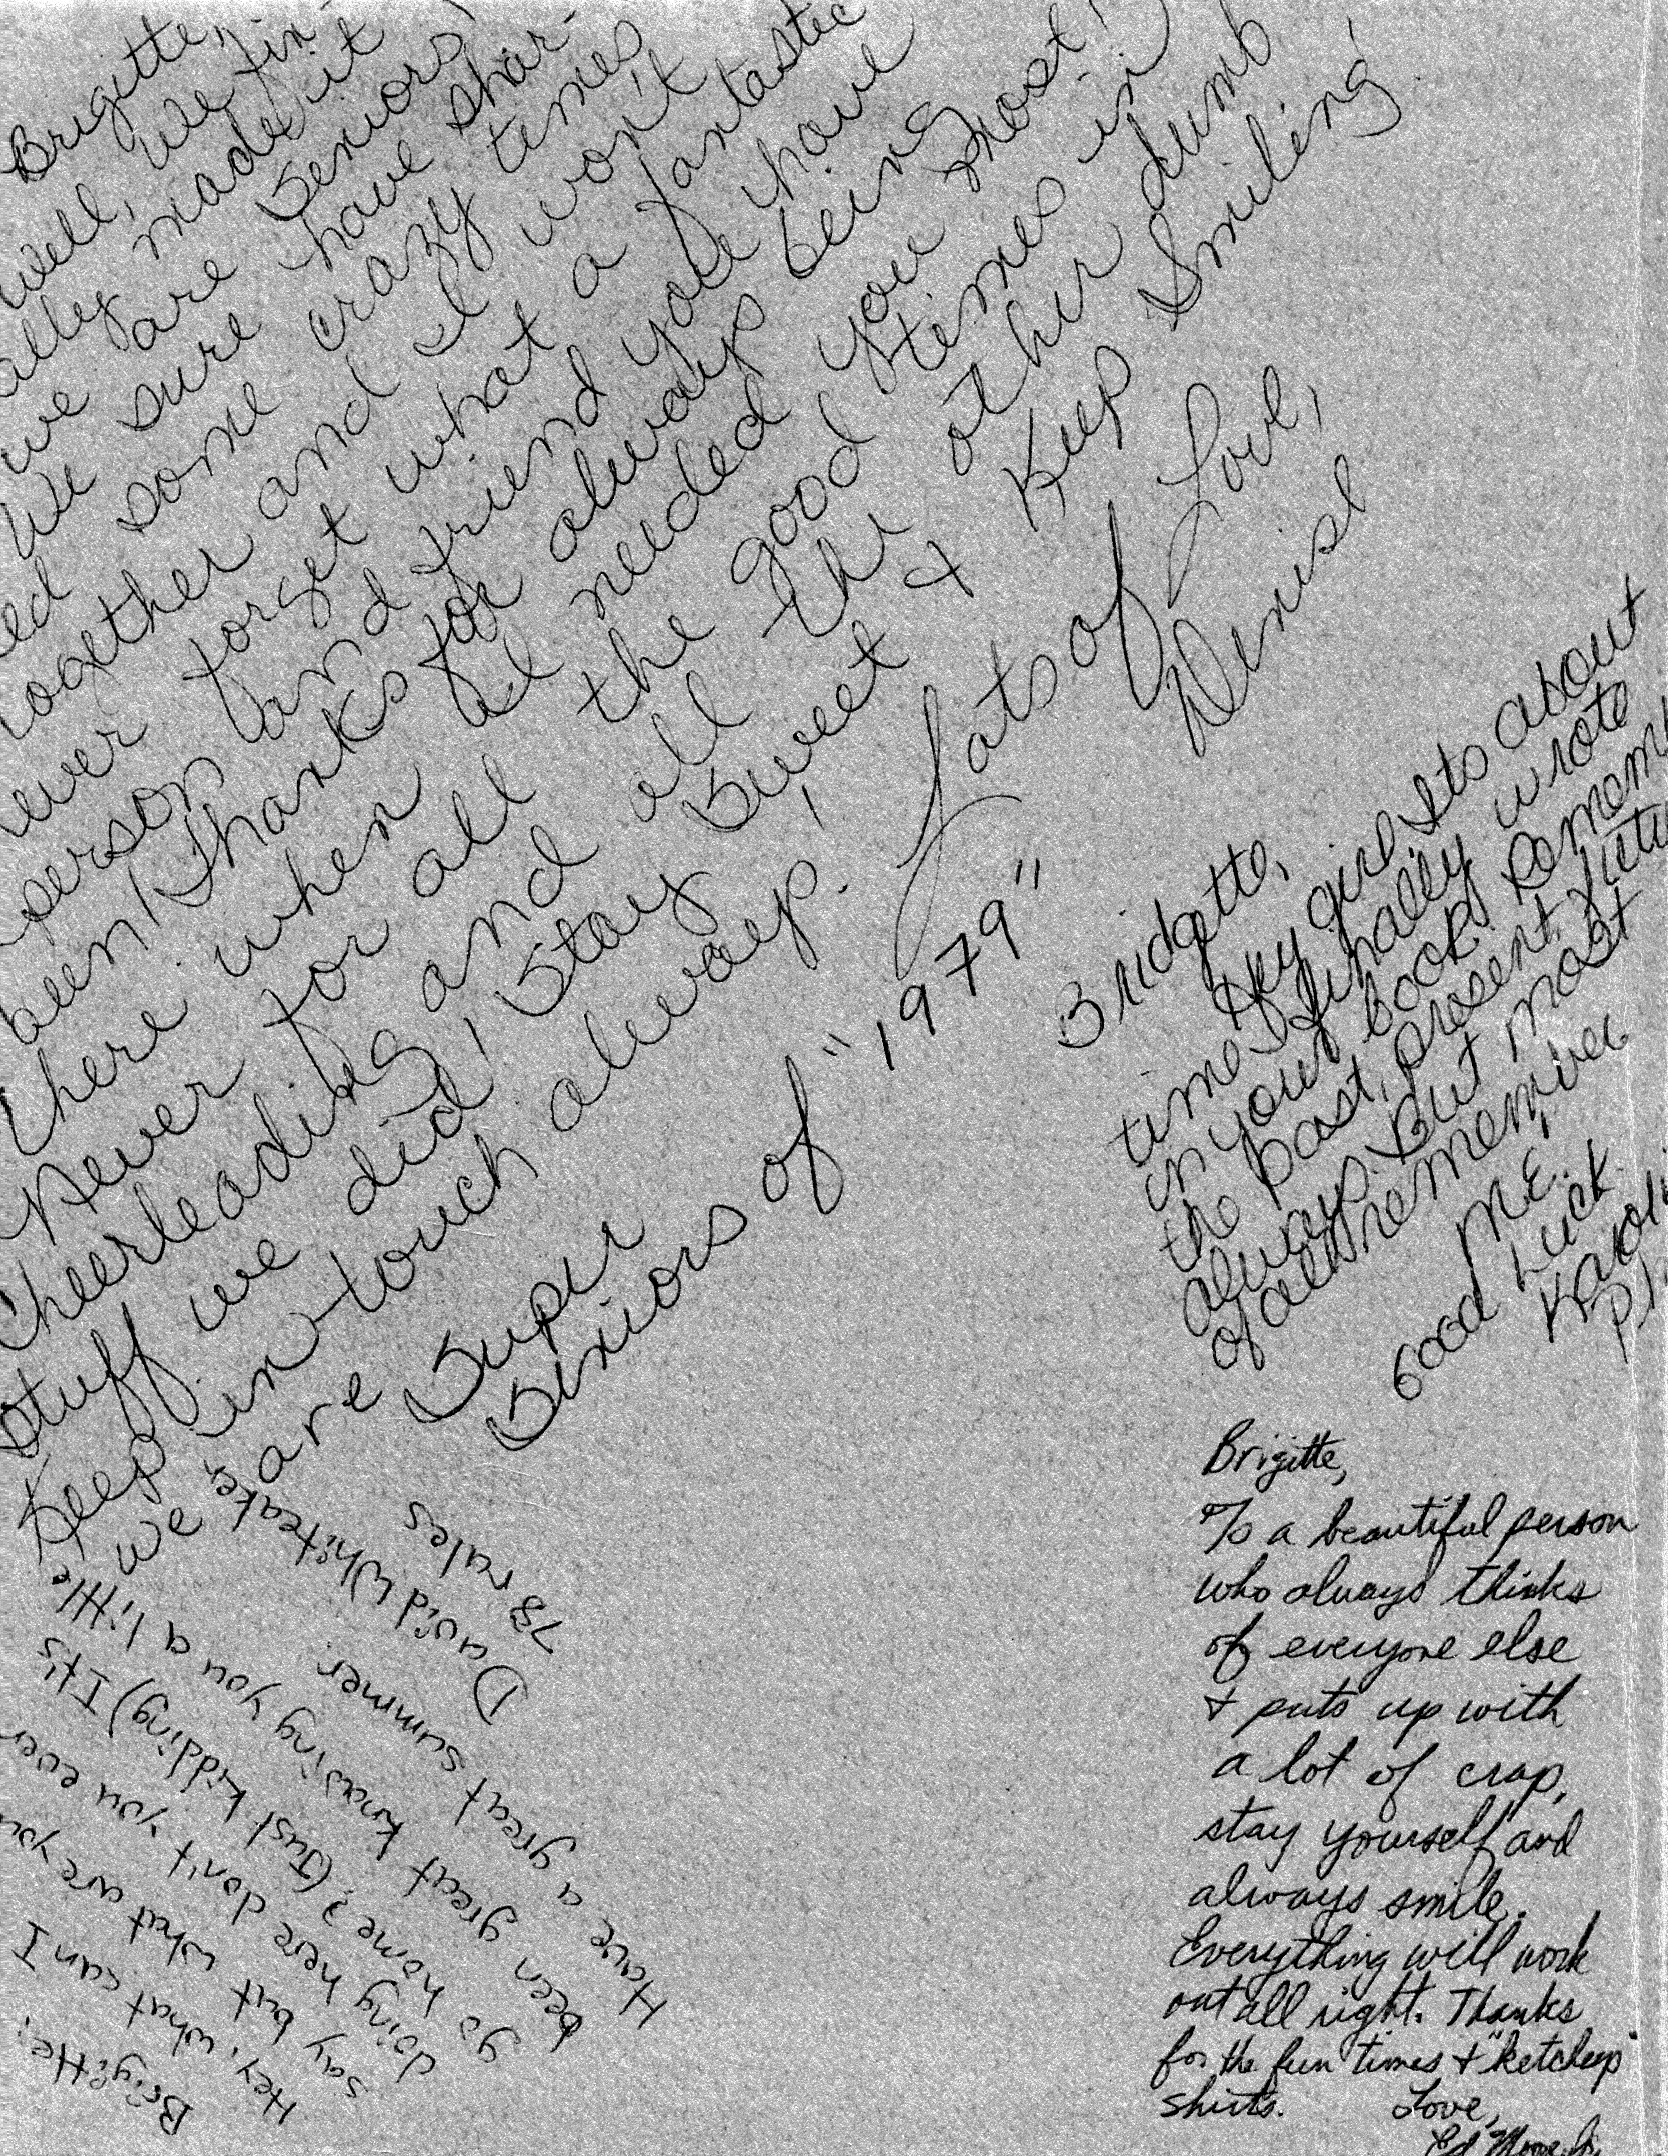 Brigitte,
Well, we fin-
ally made it
we are Seniors!
We sure have shar-
ed some crazy times
together and I won't
ever forget what a fantastic
person and friend you have
been! Thanks for always being
there when I needed you most!
Never for all the good times in
Cheerleading and all the other dumb
stuff we did! Stay Sweet & Keep Smiling!
Keep in-touch always!
Lots of Love,
Denise
we are Super
Seniors of "1979"
Bridgette,
Hey girl Its about
time I finally wrote
in your book. Remem
the past, present, futu
always. But most
of all remember
ME.
Good Luck
Brigitte,
To a beautiful person
who always thinks
of everyone else
& puts up with
a lot of crap,
stay yourself and
always smile.
Everything will work
out all right. Thanks
for the fun times & "ketchup"
shirts. Love,
Ed
Brigitte:
Hey, what can I
say but what are you
doing here don't you ever
go home? (Just kidding) It's
been great knowing you a little
Have a great summer.
David Whiteaker
78 rules